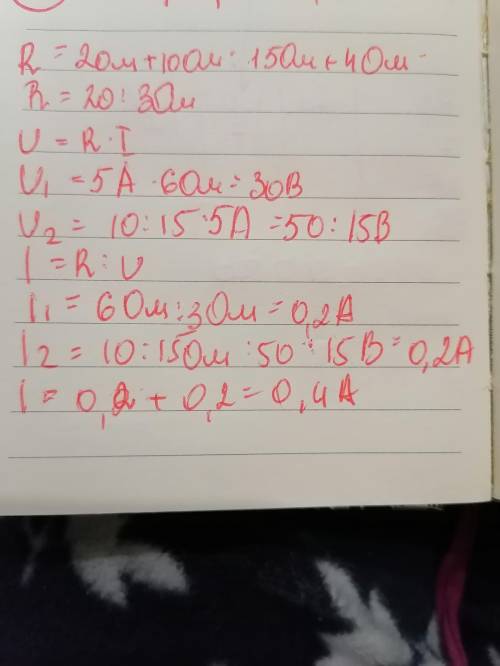 R = 2Ом + 10Ом : 15Ом + 4Ом
R = 20 : 3Ом
U = R · I
U₁ = 5А · 6Ом = 30В
U₂ = 10 : 15 · 5А = 50 : 15В
I = R : U
I₁ = 6Ом : 3Ом = 0,2А
I₂ = 10 : 15Ом : 50 : 15В = 0,2А
I = 0,2 + 0,2 = 0,4А